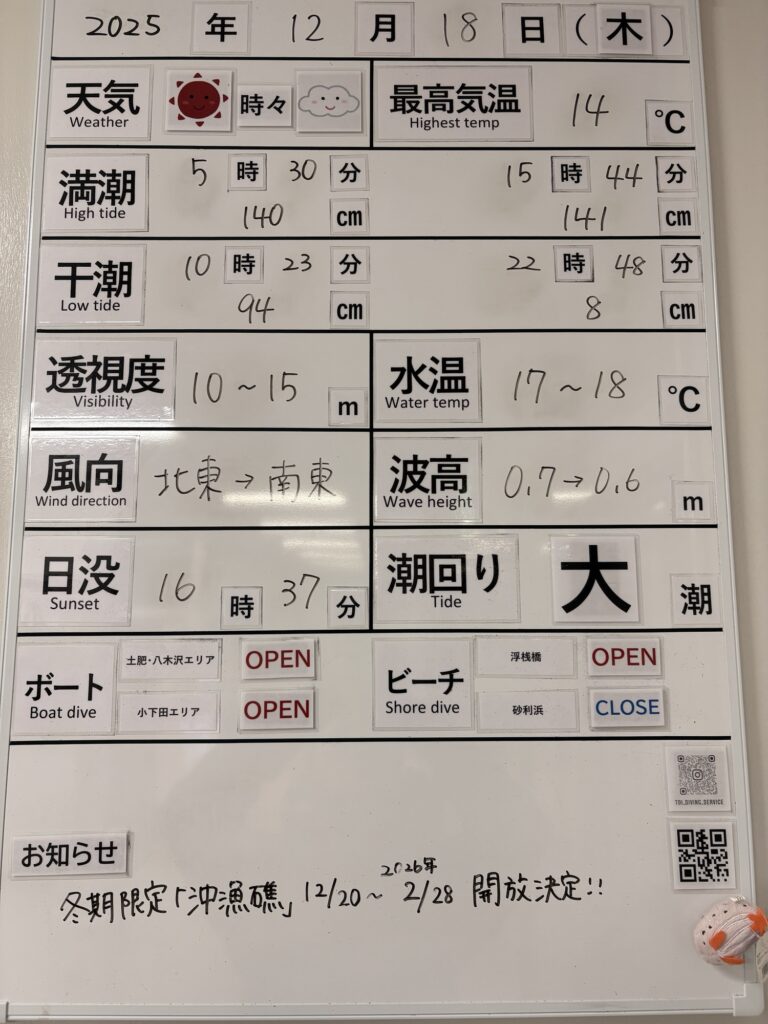 2025 年 12 月 18 日 (木)
天気 時々 最高気温 14 ℃
Weather Highest temp
満潮 5 時 30 分 15 時 44 分
High tide 140 cm 141 cm
干潮 10 時 23 分 22 時 48 分
Low tide 94 cm 8 cm
透視度 10～15 m 水温 17～18 ℃
Visibility Water temp
風向 北東→南東 波高 0.7→0.6 m
Wind direction Wave height
日没 16 時 37 分 潮回り 大 潮
Sunset Tide
ボート 土肥・八木沢エリア OPEN ビーチ 浮桟橋 OPEN
Boat dive 小下田エリア OPEN Shore dive 砂利浜 CLOSE
TOI_DIVING_SERVICE
お知らせ
2026年
冬期限定「沖漁礁」12/20～2/28 開放決定!!